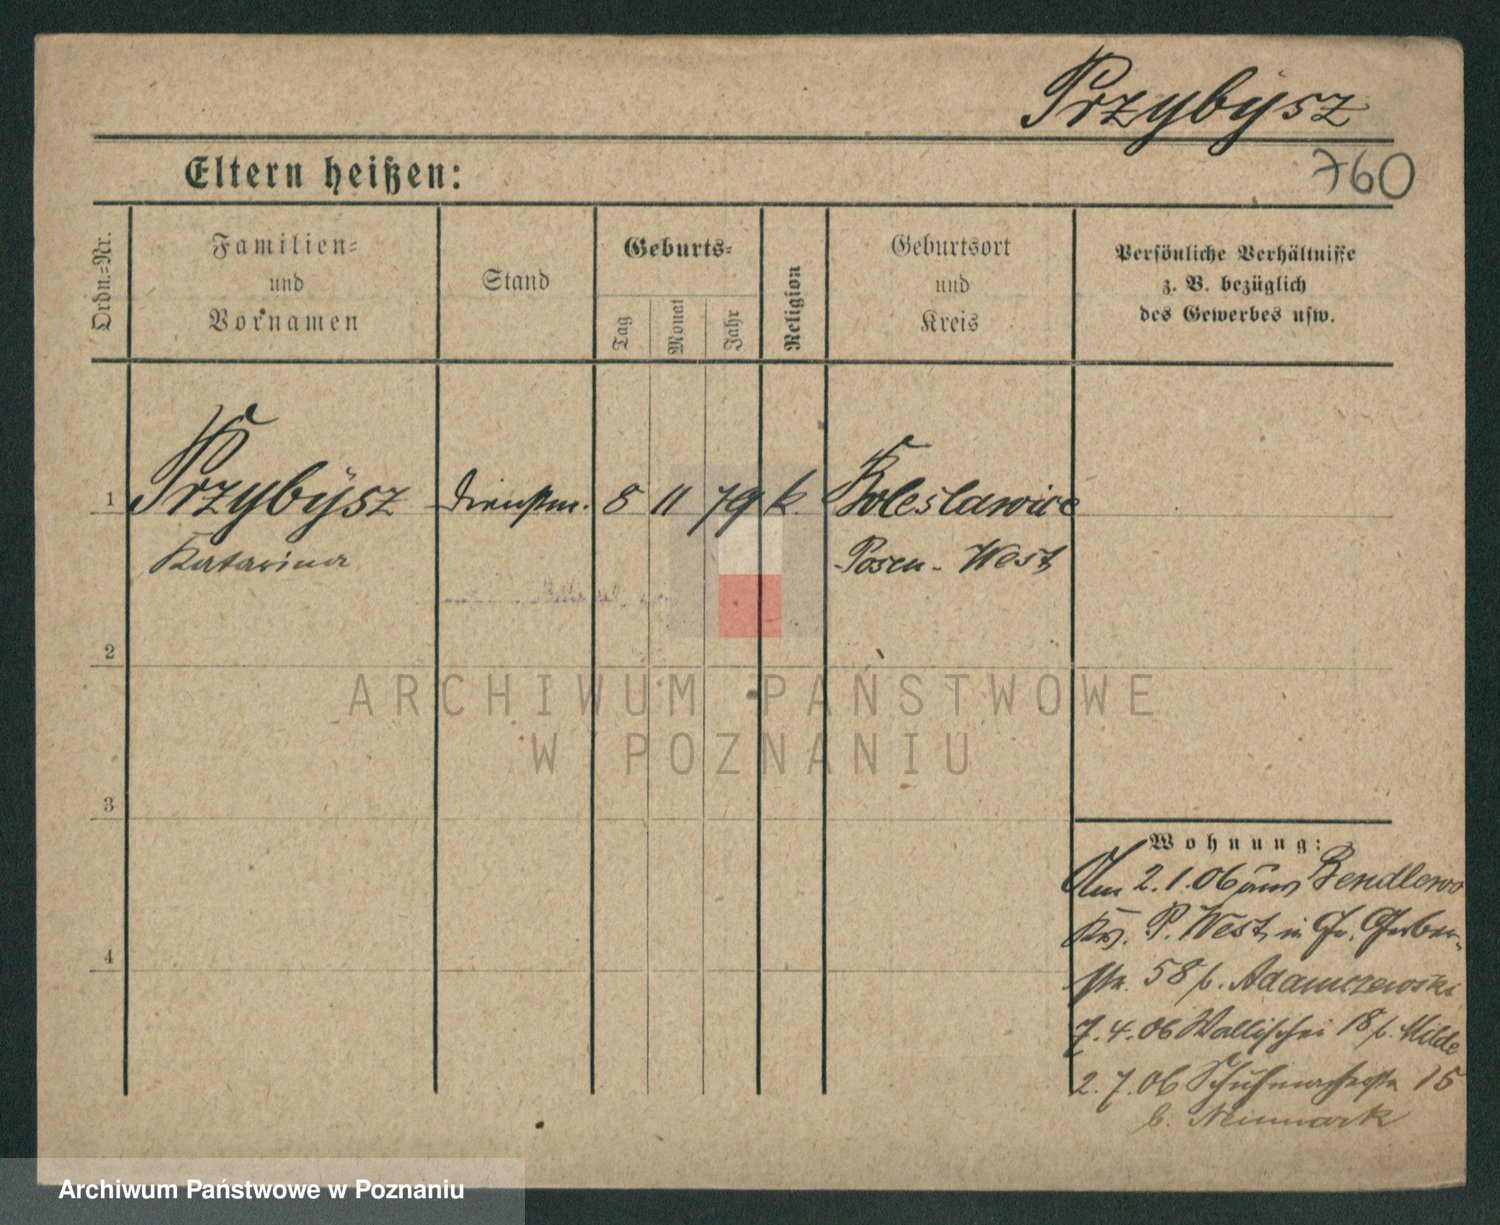 Przybÿsz
760
Eltern heißen:
Ordn.=Nr.
Familien=
und
Vornamen
Stand
Geburts=
Tag
Monat
Jahr
Religion
Geburtsort
und
Kreis
Persönliche Verhältnisse
z. B. bezüglich
des Gewerbes usw.
1 Przybÿsz Dienstm. 8 11 79 k. Boleslawice
Katarina Posen-West
2
3
4
Wohnung:
Am 2.1.06 aus Bendlewo
Kr. P. West in Gr. Gerber-
str. 58 b. Adamczewski
7.4.06 Wallischei 18 b. Milde
2.7.06 Schuhmacherstr 15
b. Neumark
ARCHIWUM PAŃSTWOWE
W POZNANIU
Archiwum Państwowe w Poznaniu